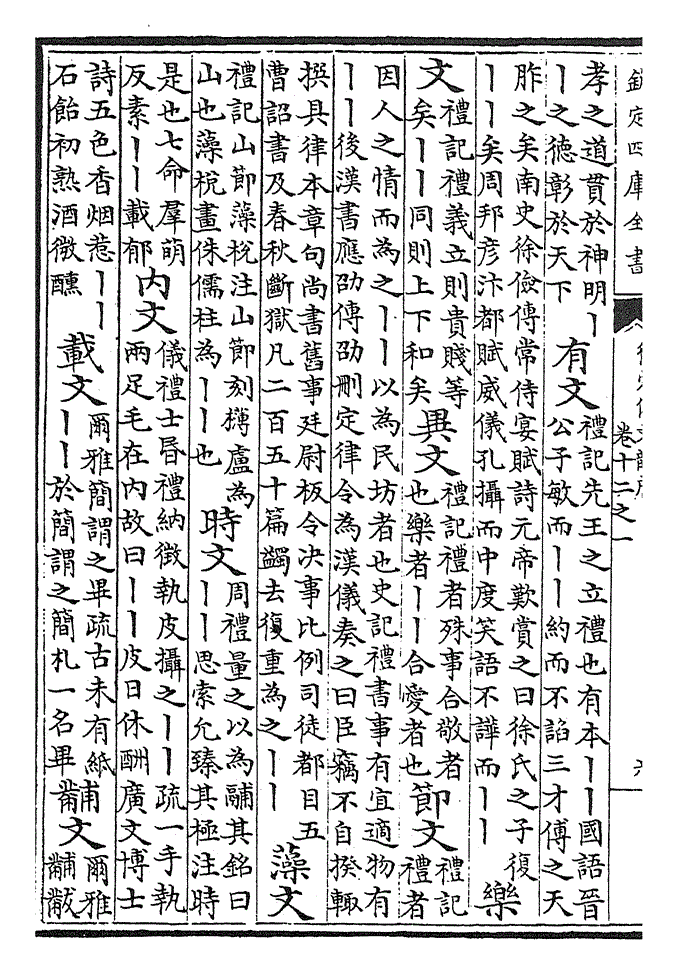 欽定四庫全書
卷十二之一
六
孝之道貫於神明丨
丨之德彰於天下
有文
禮記先王之立禮也有本丨丨國語晉
公子敏而丨丨約而不諂三才傅之天
胙之矣南史徐儉傳常侍宴賦詩元帝歎賞之曰徐氏之子復
丨丨矣周邦彥汴都賦威儀孔攝而中度笑語不譁而丨丨
樂
文
禮記禮義立則貴賤等
矣丨丨同則上下和矣
異文
禮記禮者殊事合敬者
也樂者丨丨合愛者也
節文
禮記
禮者
因人之情而為之丨丨以為民坊者也史記禮書事有宜適物有
丨丨後漢書應劭傳劭刪定律令為漢儀奏之曰臣竊不自揆輒
撰具律本章句尚書舊事廷尉板令決事比例司徒都目五
曹詔書及春秋斷獄凡二百五十篇蠲去復重為之丨丨
藻文
禮記山節藻梲注山節刻欂盧為
山也藻梲畫侏儒柱為丨丨也
時文
周禮量之以為鬴其銘曰
丨丨思索允臻其極注時
是也七命羣萌
反素丨丨載郁
内文
儀禮士昏禮納徵執皮攝之丨丨疏一手執
兩足毛在内故曰丨丨皮日休酬廣文博士
詩五色香烟惹丨丨
石飴初熟酒微醺
載文
爾雅簡謂之畢疏古未有紙
丨丨於簡謂之簡札一名畢
黼文
爾雅
黼黻